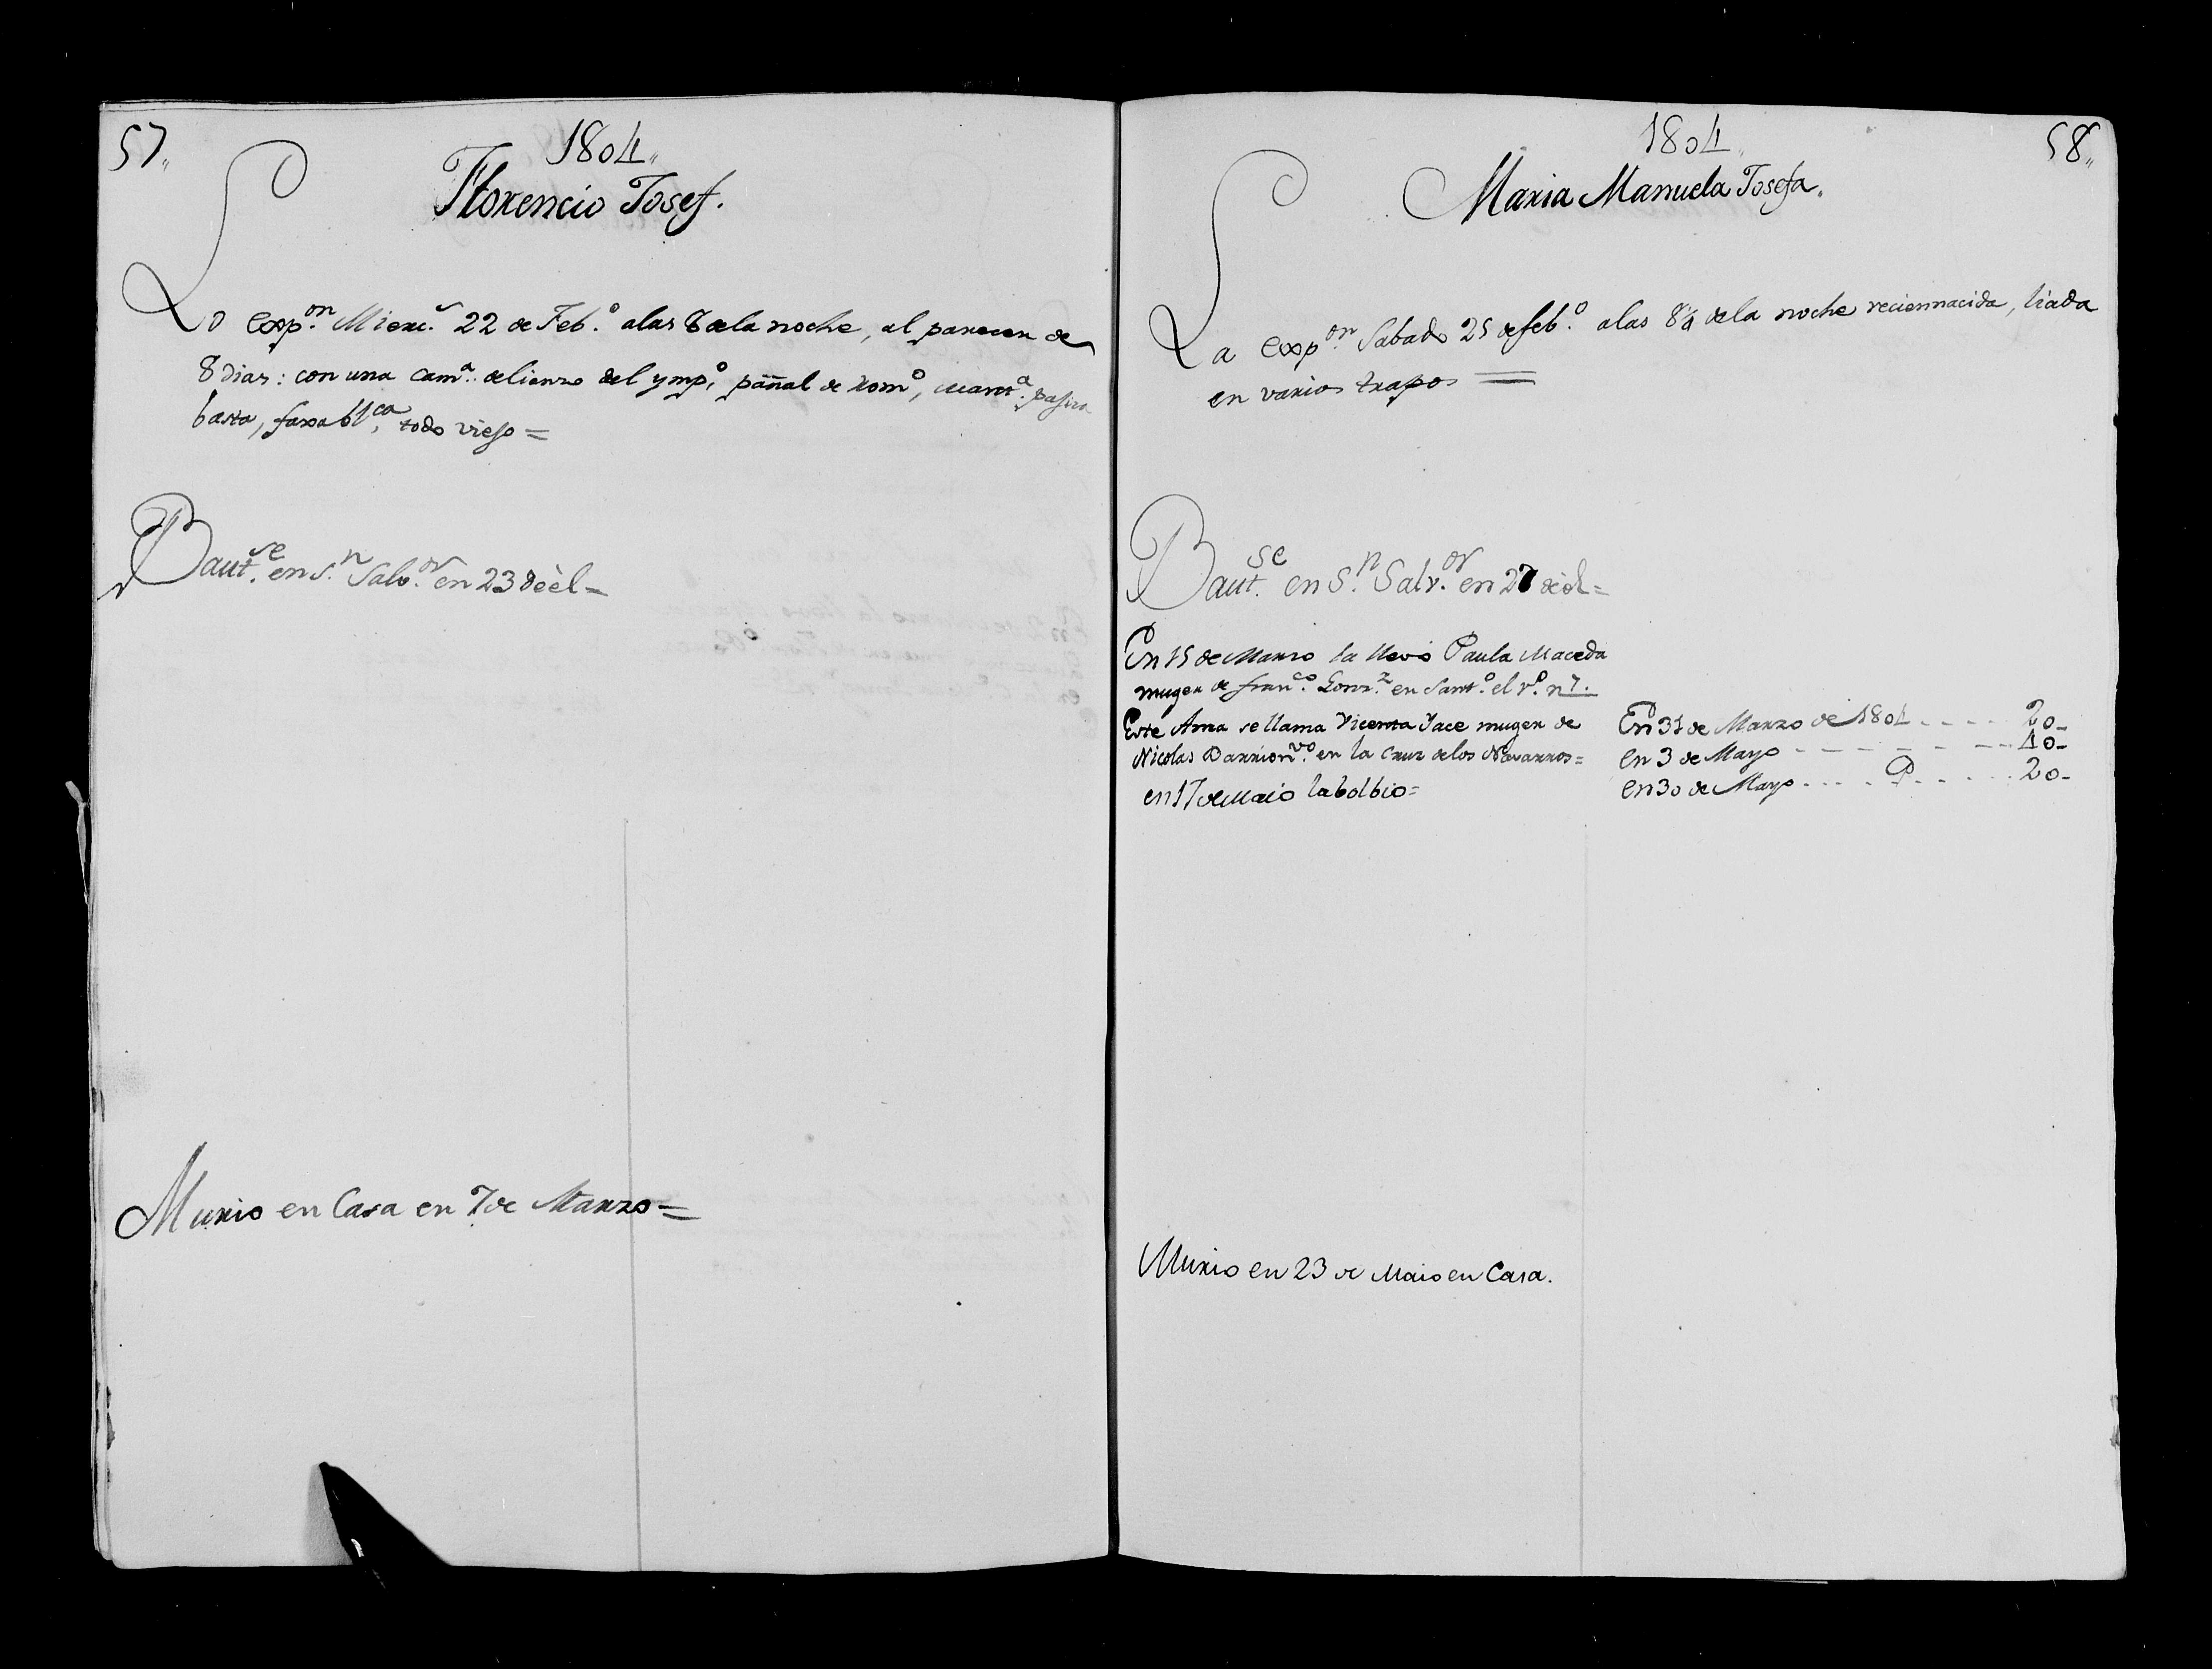 57,,
1804,,
Florencio Josef.
Lo exp.on Mierc.s 22 de Feb.o alas 8 dela noche, al parecer de
8 dias: con una cam.a de lienzo del ymp.o pañal de rom.o, mant.a pajiza
basta, faxa bl.ca, todo viejo =
Baut.se en S.n Salv.or en 23 de èl =
Murio en Casa en 7 de Marzo =
58,,
1804,,
Maria Manuela Josefa.
La exp.on Sabado 25 de feb.o alas 8¼ dela noche reciennacida, liada
en varios trapos =
Baut.se en S.n Salv.or en 27 de èl =
En 15 de Marzo la llevo Paula Maceda
muger de fran.co Gonz.z en Sant.o el r.o n 7.
Este Ama se llama Vicenta Yace muger de
Nicolas Darrion v.o en la Cruz delos Navarros =
en 17 de Maio la bolbio =
En 31 de Marzo de 1804 - - - - 20 -
en 3 de Mayo - - - - - - 40 -
en 30 de Mayo - - - - P - - - - 20 -
Murio en 23 de Maio en Casa.